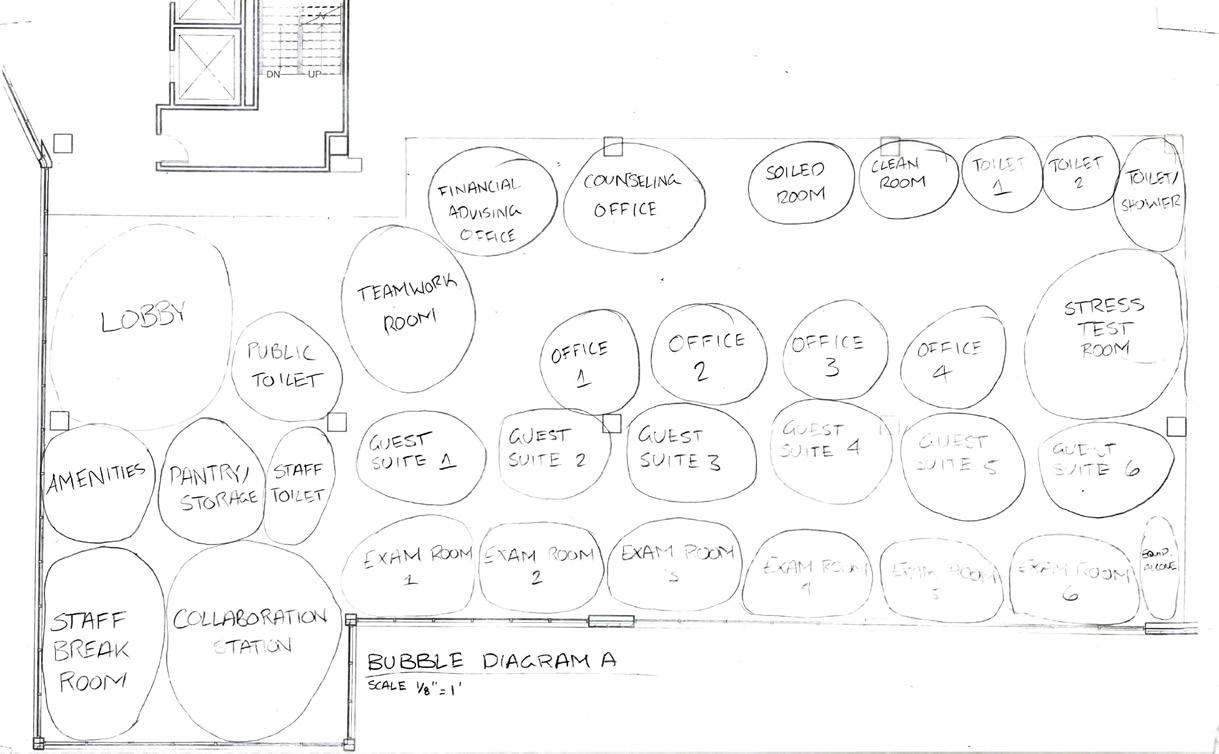 DN
UP
FINANCIAL
ADVISING
OFFICE
COUNSELING
OFFICE
SOILED
ROOM
CLEAN
ROOM
TOILET
1
TOILET
2
TOILET/
SHOWER
LOBBY
PUBLIC
TOILET
TEAMWORK
ROOM
OFFICE
1
OFFICE
2
OFFICE
3
OFFICE
4
STRESS
TEST
ROOM
AMENITIES
PANTRY/
STORAGE
STAFF
TOILET
GUEST
SUITE 1
GUEST
SUITE 2
GUEST
SUITE 3
GUEST
SUITE 4
GUEST
SUITE 5
GUEST
SUITE 6
STAFF
BREAK
ROOM
COLLABORATION
STATION
EXAM ROOM
1
EXAM ROOM
2
EXAM ROOM
3
EXAM ROOM
4
EXAM ROOM
5
EXAM ROOM
6
EQUIP.
ALCOVE
BUBBLE DIAGRAM A
SCALE 1/8" = 1'